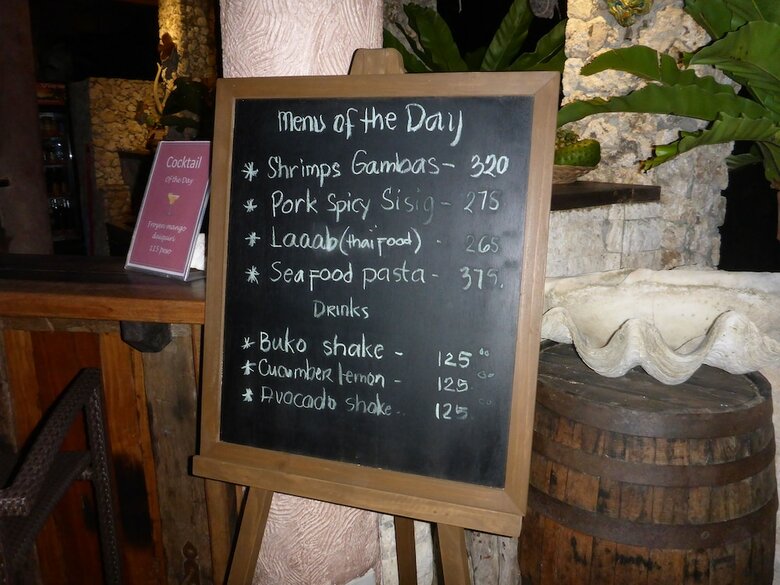 Menu of the Day
* Shrimps Gambas - 320
* Pork Spicy Sisig - 275
* Laaab (thai food) - 265
* Seafood pasta - 375.
Drinks
* Buko shake - 125 00
* Cucumber lemon - 125 00
* Avocado shake - 125. 00
Cocktail
Of the Day
Frozen mango
daiquiri
215 peso